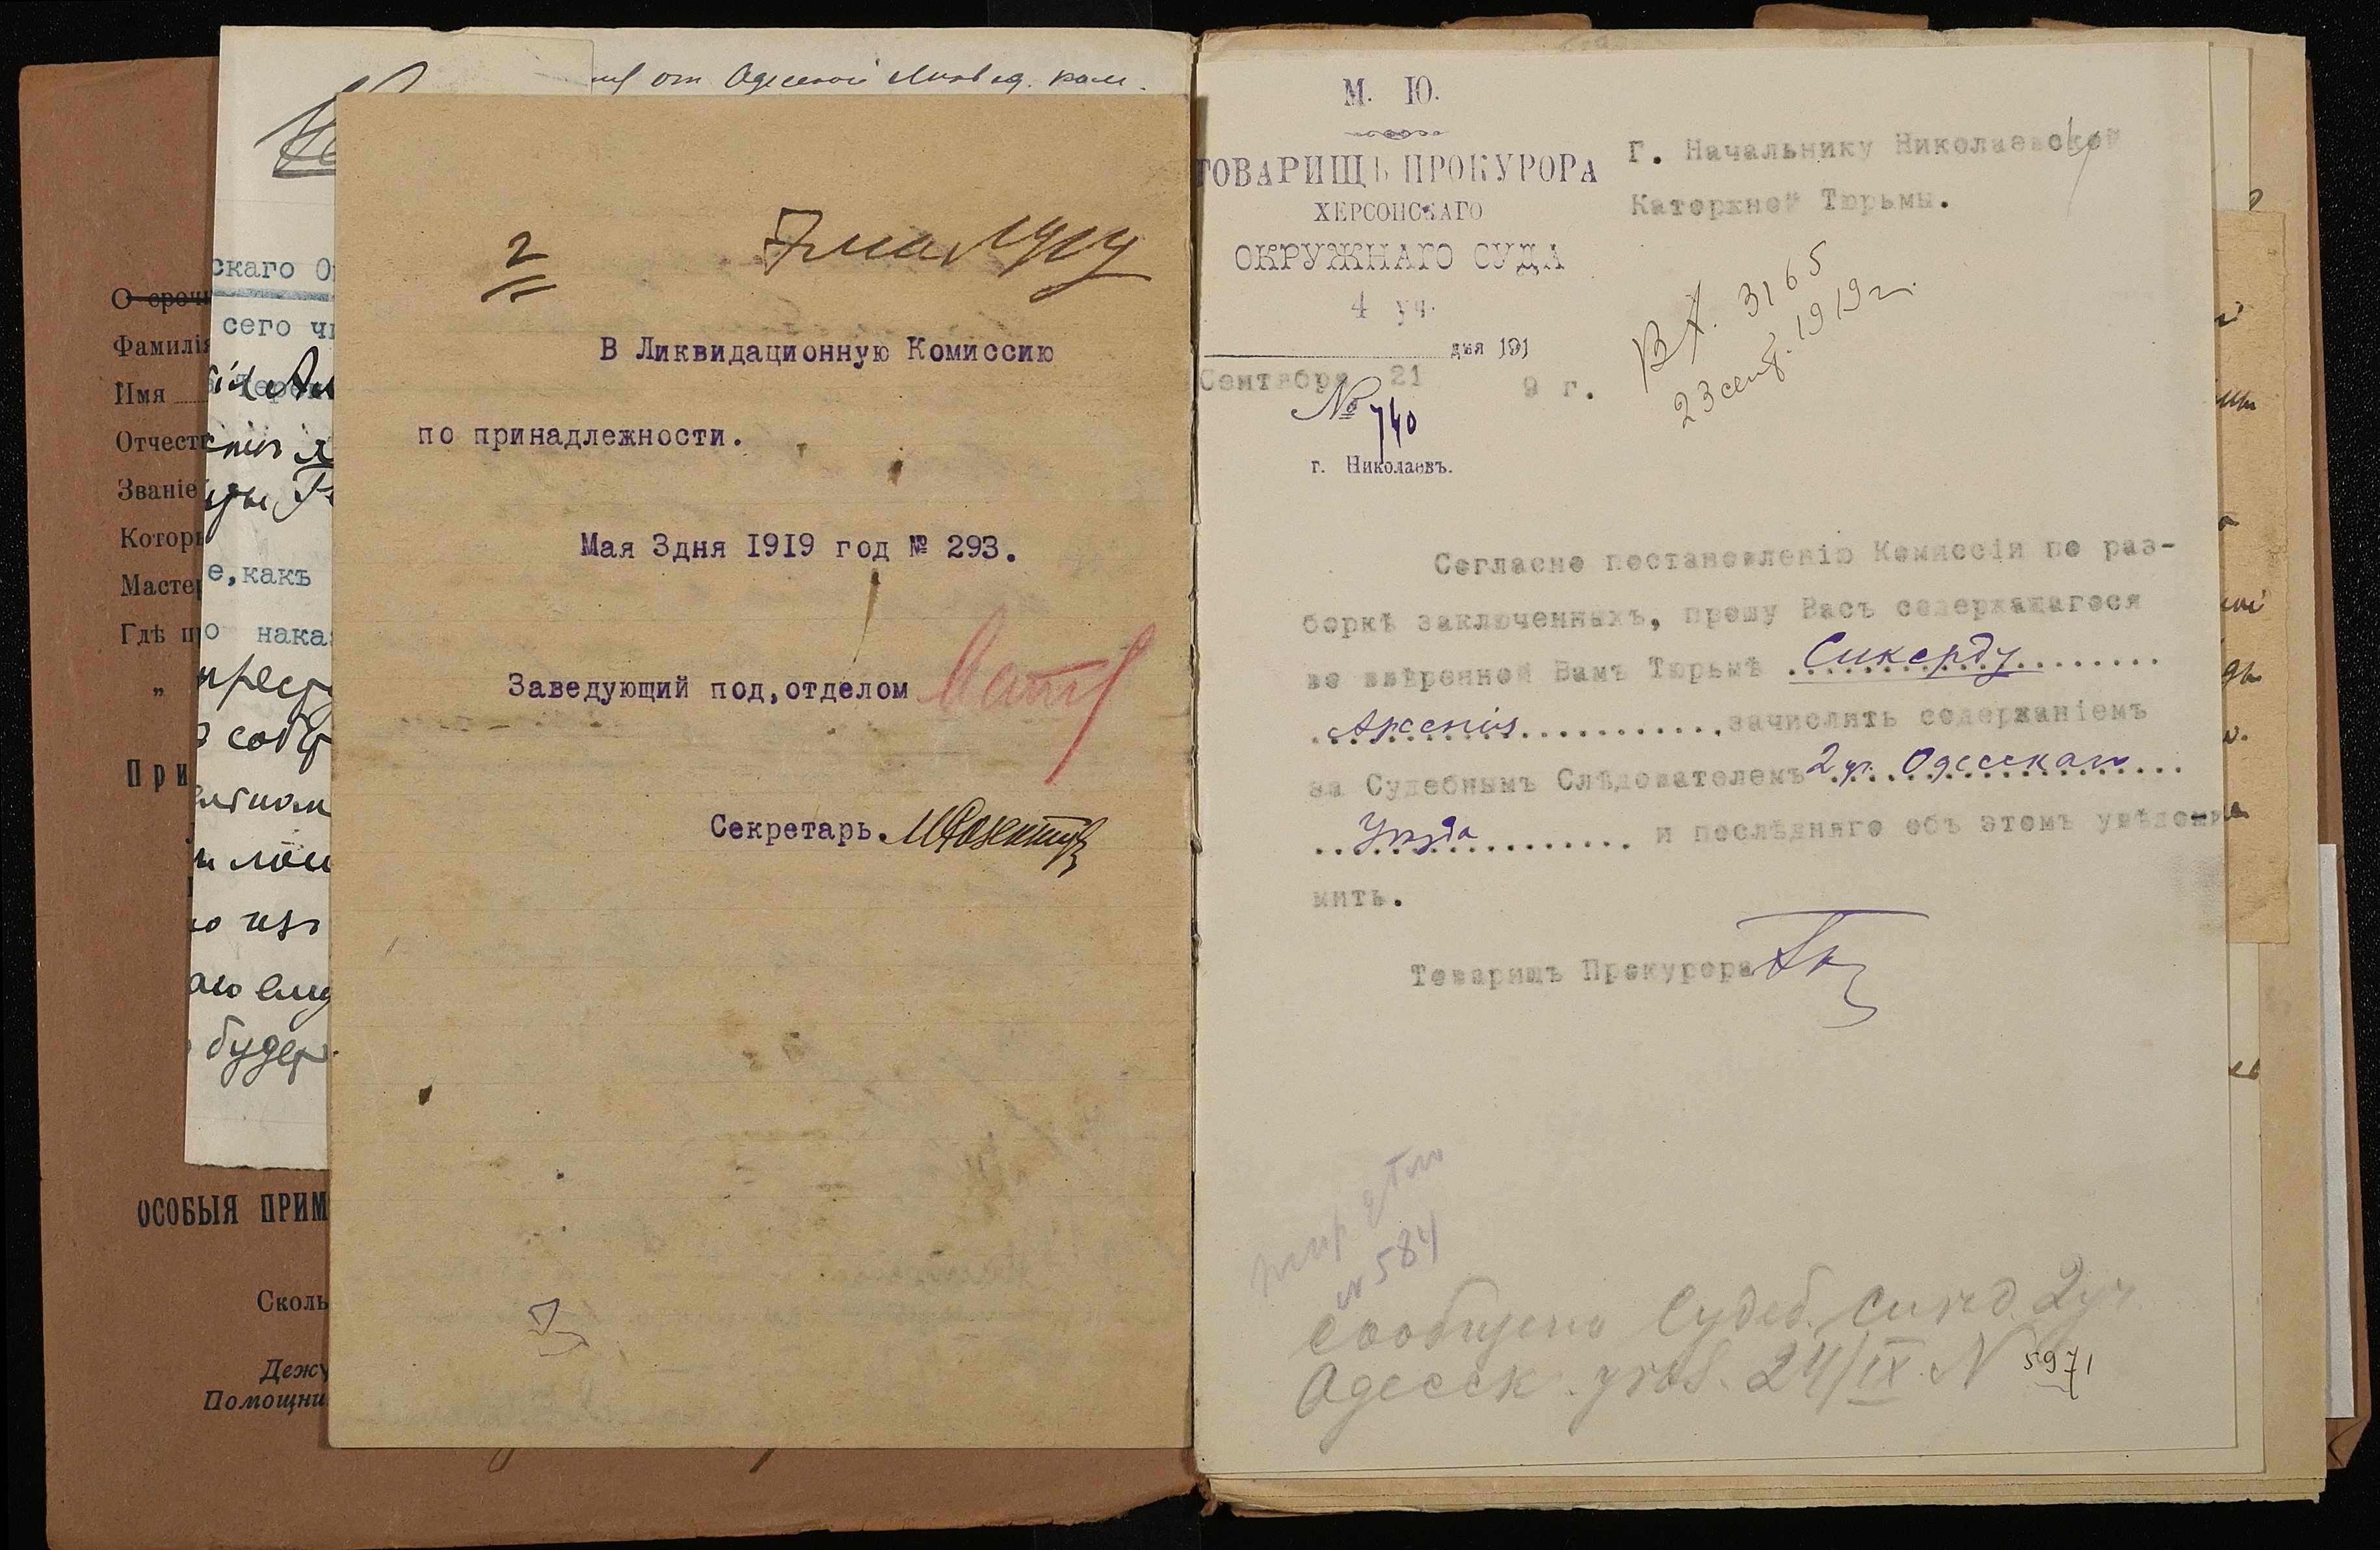 от Одесской Ликвид. ком.
скаго О
О сроч
сего чи
Фамилія
Имя
Отчест
Званіе
Которы
Мастер
е, какъ
Гдѣ п
о нака
„
При
будет
ОСОБЫЯ ПРИМ
Сколь
Дежу
Помощни
2
7 мая 1919
В Ликвидационную Комиссию
по принадлежности.
Мая 3дня 1919 год № 293.
Заведующий под,отделом
Секретарь
М. Ю.
ТОВАРИЩЪ ПРОКУРОРА
ХЕРСОНСКАГО
ОКРУЖНАГО СУДА
4 уч.
дня 191
Сентября 21 9 г.
№ 740
г. Николаевъ.
Г. Начальнику Николаевской
Каторжной Тюрьмы.
Вх. 3165
23 сент. 1919 г.
Согласно постановленію Комиссіи по раз-
боркѣ заключенныхъ, прошу Васъ содержащагося
во ввѣренной Вамъ Тюрьмѣ Сикерду
Арсенія зачислить содержаніемъ
за Судебнымъ Слѣдователемъ 2 уч. Одесскаго
Уѣзда и послѣдняго объ этомъ увѣдо
мить.
Товарищъ Прокурора
№ 584
Сообщено Судеб. Слѣд. 2 уч
Одесск. уѣзд. 24/IX N 5971